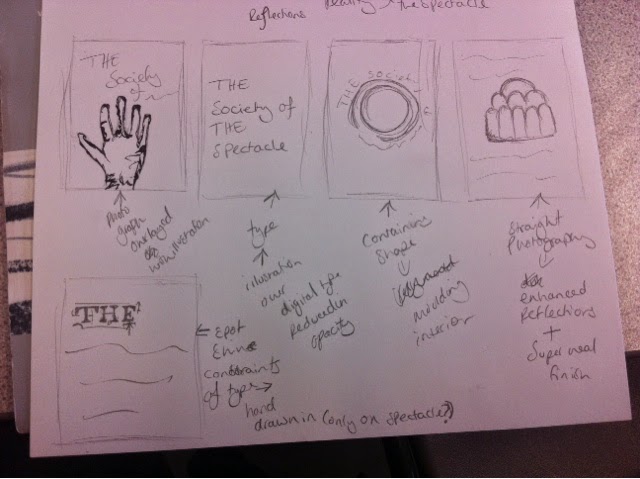 Reflections Reality the Spectacle
THE
Society
of
THE
Society of
THE
Spectacle
THE Society
Photo
graph
overlayed
with illustration
type
illustration
over
digital type
reduced in
opacity
Containing
Shape
moulding
interior
Straight
Photography
enhanced
Reflections
+
Super neal
finish
THE
constraints
of type
hand
drawn in (only on spectacle?)